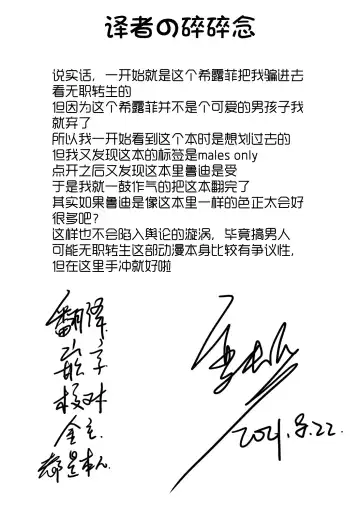 译者の碎碎念
说实话，一开始就是这个希露菲把我骗进去
看无职转生的
但因为这个希露菲并不是个可爱的男孩子我
就弃了
所以我一开始看到这个本时是想划过去的
但我又发现这本的标签是males only
点开之后又发现这本里鲁迪是受
于是我就一鼓作气的把这本翻完了
其实如果鲁迪是像这本里一样的色正太会好
很多吧？
这样也不会陷入舆论的漩涡，毕竟搞男人
可能无职转生这部动漫本身比较有争议性，
但在这里手冲就好啦
翻译
嵌字
校对
金主
都是本人
2021.8.22.